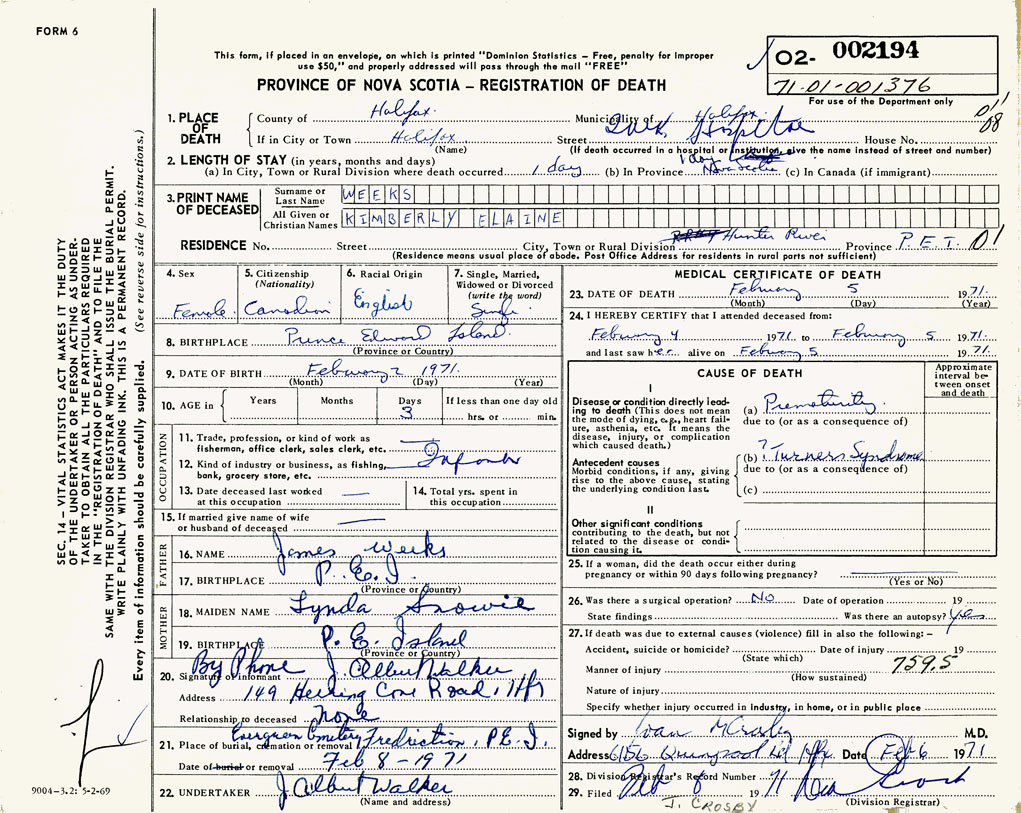 FORM 6
This form, if placed in an envelope, on which is printed "Dominion Statistics – Free, penalty for improper
use $50," and properly addressed will pass through the mail "FREE"
PROVINCE OF NOVA SCOTIA – REGISTRATION OF DEATH
02- 002194
71-01-001376
For use of the Department only
SEC. 14 – VITAL STATISTICS ACT MAKES IT THE DUTY
OF THE UNDERTAKER OR PERSON ACTING AS UNDER-
TAKER TO OBTAIN ALL THE PARTICULARS REQUIRED
IN THE "REGISTRATION OF DEATH" AND TO FILE THE
SAME WITH THE DIVISION REGISTRAR WHO SHALL ISSUE THE BURIAL PERMIT.
WRITE PLAINLY WITH UNFADING INK. THIS IS A PERMANENT RECORD.
Every item of information should be carefully supplied. (See reverse side for instructions.)
1. PLACE OF DEATH
County of Halifax Municipality of Halifax
If in City or Town Halifax Street Hospital House No.
(Name) (If death occurred in a hospital or institution, give the name instead of street and number)
2. LENGTH OF STAY (in years, months and days)
(a) In City, Town or Rural Division where death occurred 1 day (b) In Province 1 day Nova Scotia (c) In Canada (if immigrant)
3. PRINT NAME OF DECEASED
Surname or Last Name WEEKS
All Given or Christian Names KIMBERLY ELAINE
RESIDENCE No. Street City, Town or Rural Division Hunter River Province P.E.I. 01
(Residence means usual place of abode. Post Office Address for residents in rural parts not sufficient)
4. Sex Female
5. Citizenship (Nationality) Canadian
6. Racial Origin English
7. Single, Married, Widowed or Divorced (write the word) Single
8. BIRTHPLACE Prince Edward Island
(Province or Country)
9. DATE OF BIRTH February 2 1971.
(Month) (Day) (Year)
10. AGE in Years Months Days 3 If less than one day old
hrs. or min.
OCCUPATION
11. Trade, profession, or kind of work as
fisherman, office clerk, sales clerk, etc.
12. Kind of industry or business, as fishing, Infant
bank, grocery store, etc.
13. Date deceased last worked
at this occupation
14. Total yrs. spent in
this occupation
15. If married give name of wife
or husband of deceased
FATHER
16. NAME James Weeks
17. BIRTHPLACE P.E.I.
(Province or Country)
MOTHER
18. MAIDEN NAME Lynda Snowie
19. BIRTHPLACE P. E. Island
(Province or Country)
By Phone J. Albert Walker
20. Signature of informant
Address 149 Herring Cove Road, Hfx
Relationship to deceased none
Evergreen Cemetery Fredriction, P.E.I.
21. Place of burial, cremation or removal
Date of burial or removal Feb 8 - 1971
22. UNDERTAKER J. Albert Walker
(Name and address)
9004–3.2: 5-2-69
MEDICAL CERTIFICATE OF DEATH
23. DATE OF DEATH February 5 1971.
(Month) (Day) (Year)
24. I HEREBY CERTIFY that I attended deceased from:
February 4 1971. to February 5 1971.
and last saw her alive on February 5 1971.
CAUSE OF DEATH
Approximate interval between onset and death
I
Disease or condition directly leading to death (This does not mean the mode of dying, e.g., heart failure, asthenia, etc. It means the disease, injury, or complication which caused death.)
(a) Prematurity.
due to (or as a consequence of)
Antecedent causes
Morbid conditions, if any, giving rise to the above cause, stating the underlying condition last.
(b) ? Turners Syndrome
due to (or as a consequence of)
(c)
II
Other significant conditions
contributing to the death, but not related to the disease or condition causing it.
25. If a woman, did the death occur either during
pregnancy or within 90 days following pregnancy?
(Yes or No)
26. Was there a surgical operation? NO Date of operation 19
State findings Was there an autopsy? Yes
27. If death was due to external causes (violence) fill in also the following: –
Accident, suicide or homicide? Date of injury 19
(State which)
759.5
Manner of injury
(How sustained)
Nature of injury
Specify whether injury occurred in industry, in home, or in public place
Signed by Ivan M Crosby M.D.
Address 6156 Quinpool Rd Hfx. Date Feb 6 1971
28. Division Registrar's Record Number
29. Filed Feb 8 1971
(Division Registrar)
J. CROSBY